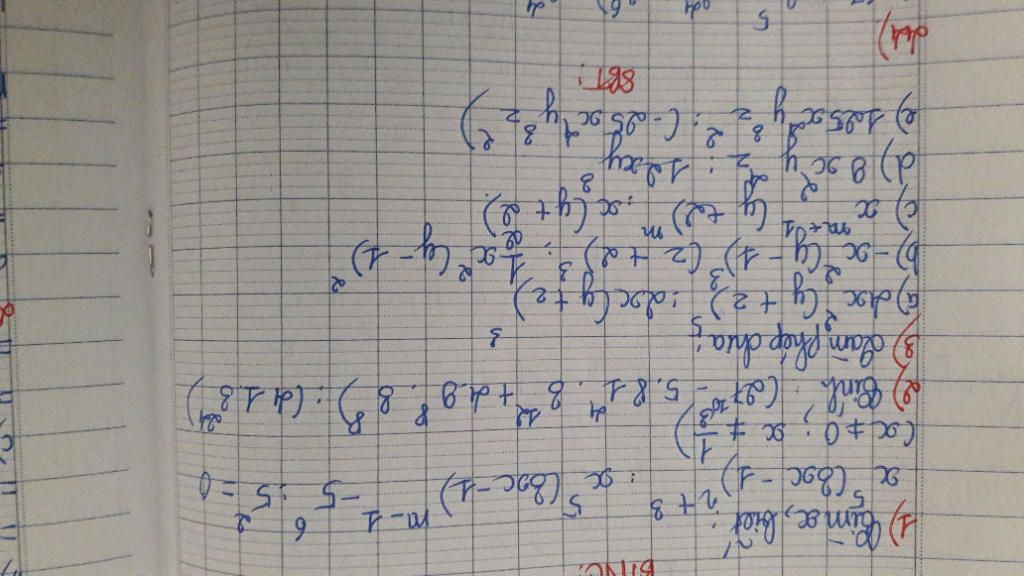 BTNC:
1) Tìm x, biết:
x⁵(3x-1)ⁿ⁺³ : x⁵(3x-1)ᵐ⁻¹ - 5⁶ : 5² = 0
(x ≠ 0 ; x ≠ 1/3)
2) Tính: (27¹⁰ - 5.81⁴.3¹² + 4.9⁸.3⁸) : (41.3²⁴)
3) Làm phép chia:
a) 4x²(y+z)⁵ : 2x(y+z)³
b) -x²(y-1)³(z+2)³ : 1/2x²(y-1)²
c) x (y+2) : x (y+2)
d) 8x²y⁴z : 12xy³
e) 125x⁴y³z² : (-25x⁴y³z²)
SBT: